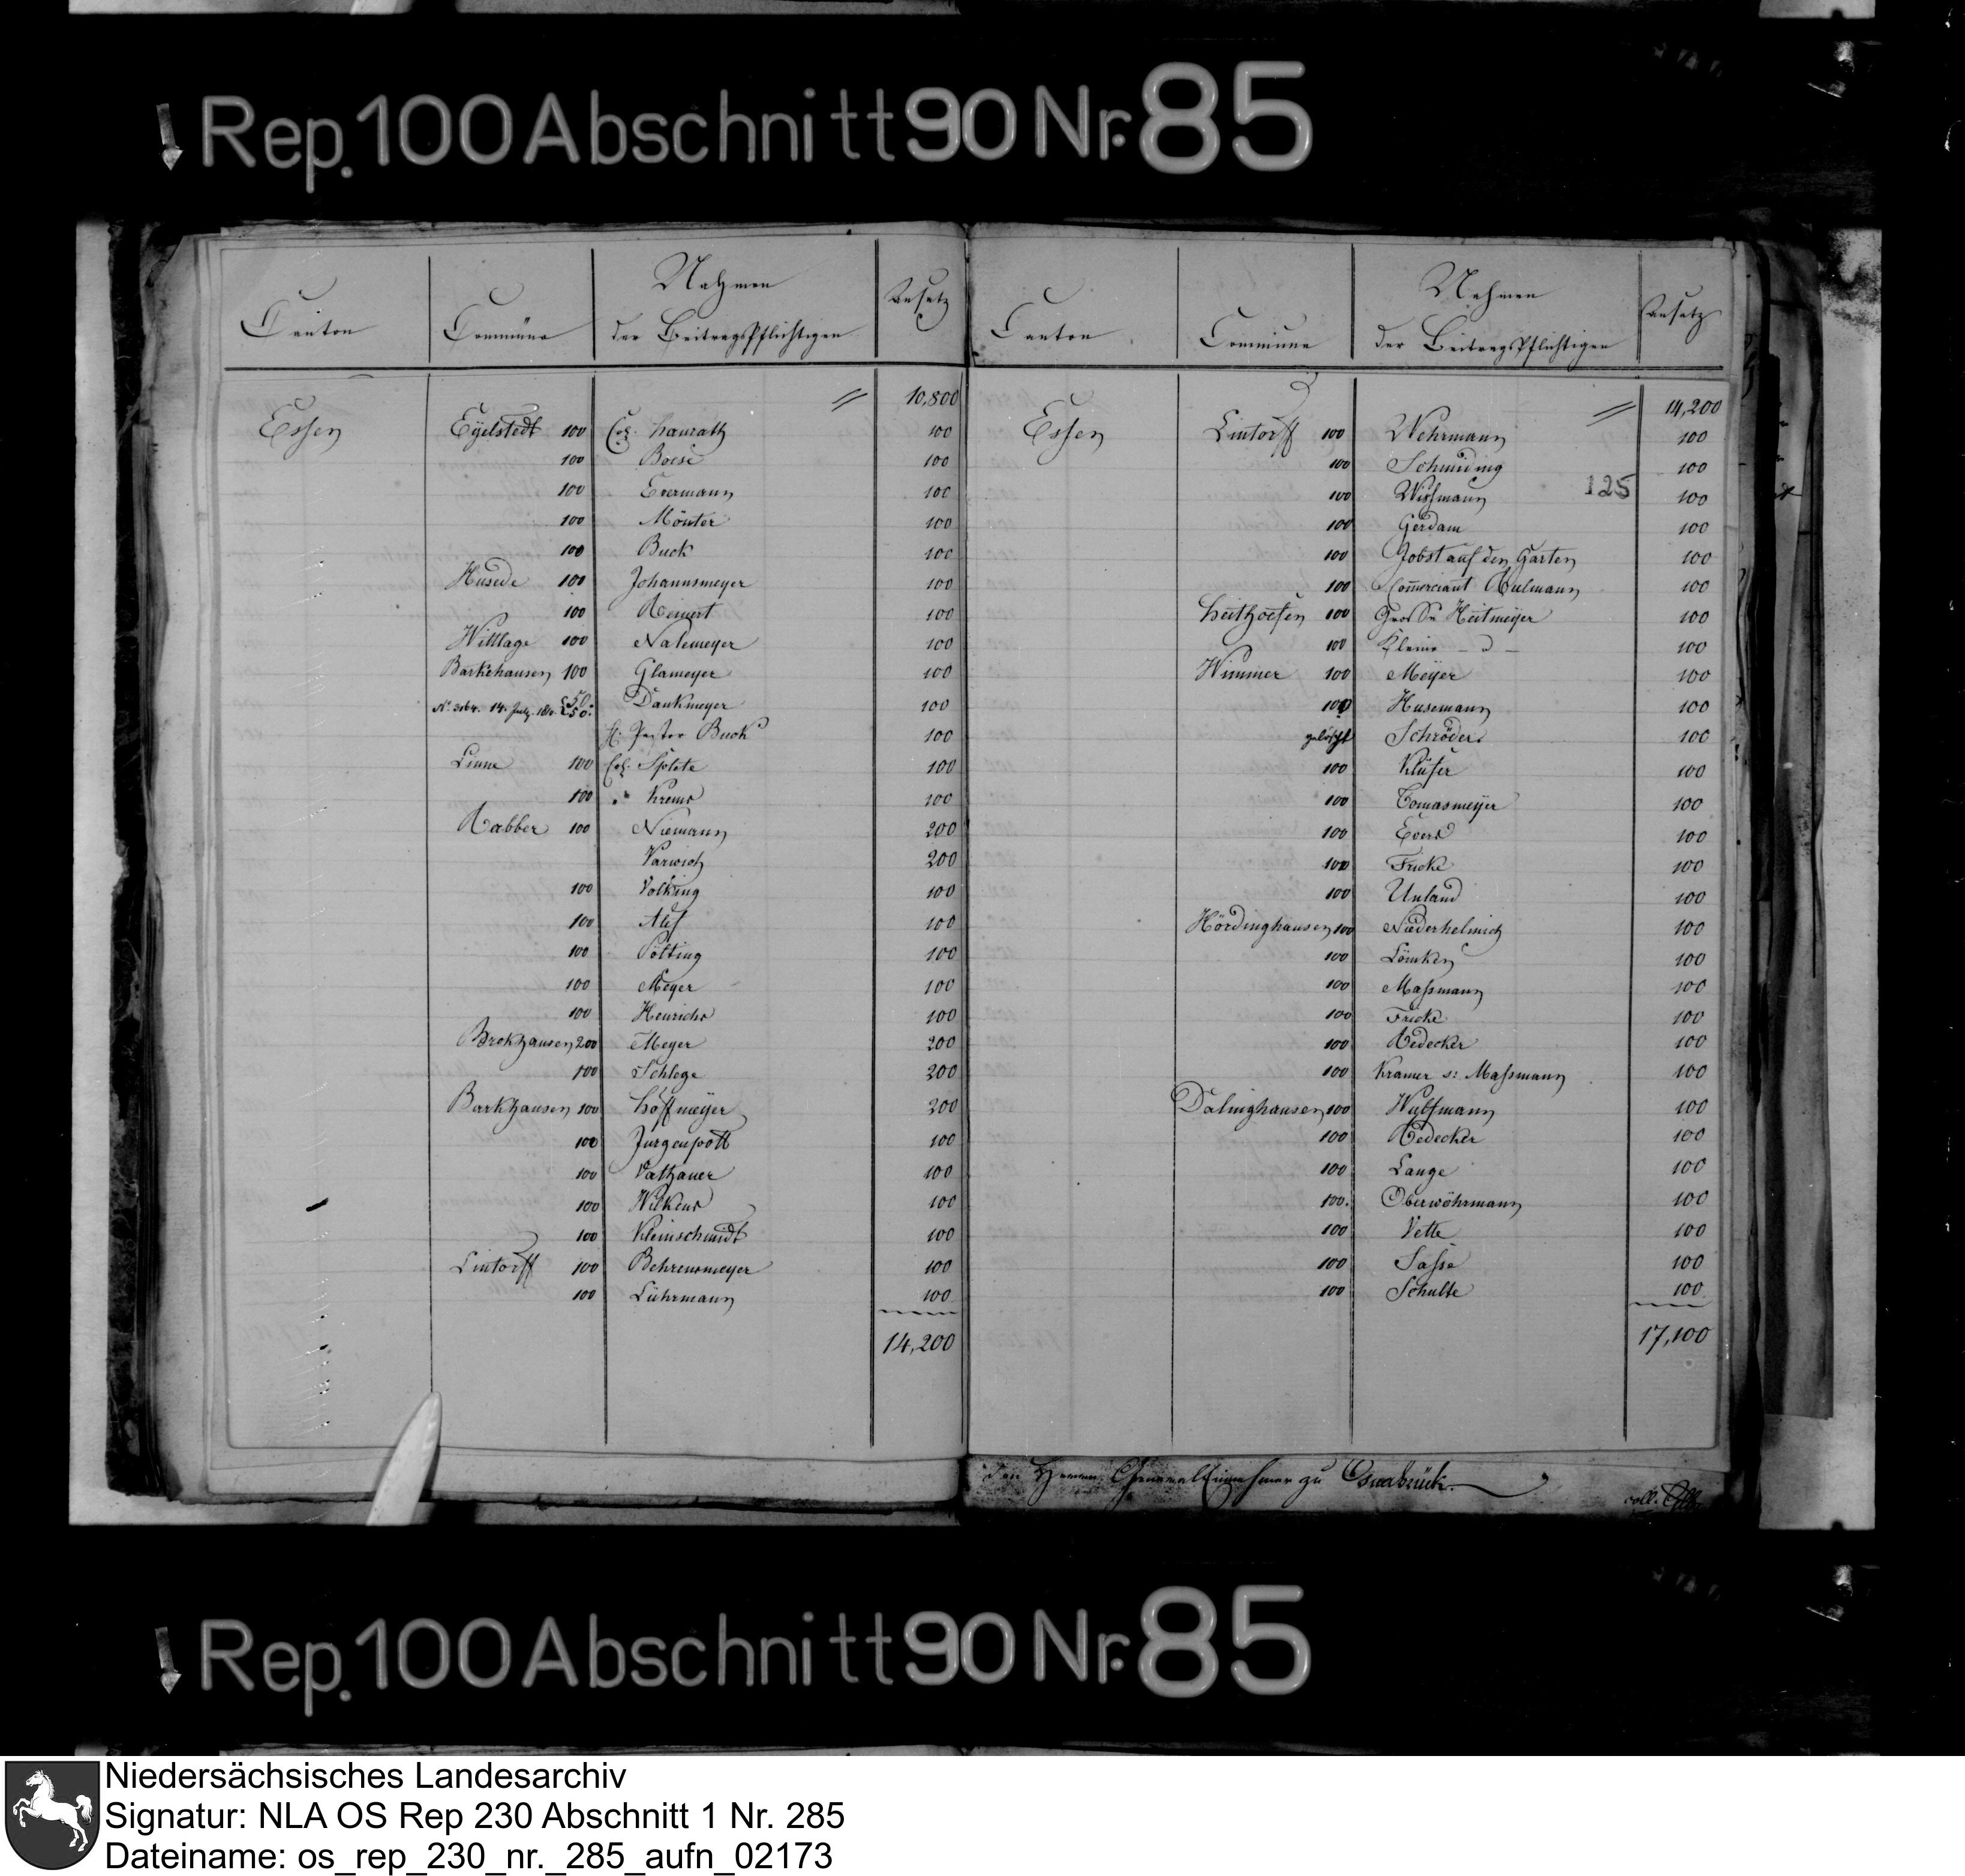 Rep. 100 Abschnitt 90 Nr. 85
Canton Commüne Nahmen der Beitragspflichtigen Ansatz
10,800
Essen Eyelstedt 100 Col. Haurath 100
100 Boese 100
100 Evermann 100
100 Mönter 100
100 Buck 100
Husede 100 Johannsmeyer 100
100 Reinert 100
Wittlage 100 Nalemeyer 100
Barkehausen 100 Glameyer 100
50. 50. Dankmeyer 100
H. Pastor Buck 100
Linne 100 Col. Splete 100
100 " Krems 100
Rabber 100 Niemann 200
Varwich 200
100 Volking 100
100 Alef 100
100 Pölting 100
100 Meyer 100
100 Henrichs 100
Brokhausen 200 Meyer 200
100 Schlege 200
Barkhausen 100 Höffmeyer 200
100 Jurgenpott 100
100 Vathauer 100
100 Wilkens 100
100 Kleinschmidt 100
Lintorff 100 Behrensmeyer 100
100 Lührmann 100
14,200
Canton Commüne Nahmen der Beitragspflichtigen Ansatz
14,200
Essen Lintorff 100 Wehrmann 100
100 Schmiding 100
100 Wissmann 125 100
100 Gerdam 100
100 Jobst auf den Garten 100
100 Com̅erciant Rulmann 100
Heithoefen 100 Große Heitmeyer 100
100 Kleine - d - 100
Wimmer 100 Meyer 100
100 Husemann 100
gelöscht Schröder 100
100 Klüser 100
100 Tomasmeyer 100
100 Evers 100
100 Fricke 100
100 Unland 100
Hördinghausen 100 Niederhelmich 100
100 Lömker 100
100 Maßmann 100
100 Fricke 100
100 Redecker 100
100 Kramer s: Maßmann 100
Dalinghausen 100 Wulfmann 100
100 Redecker 100
100 Lange 100
100. Oberwöhrmann 100
100 Vette 100
100 Sasse 100
100 Schulte 100
17,100
Den Herrn General Einnehmer zu Osnabrück.
coll.
Rep. 100 Abschnitt 90 Nr. 85
Niedersächsisches Landesarchiv
Signatur: NLA OS Rep 230 Abschnitt 1 Nr. 285
Dateiname: os_rep_230_nr._285_aufn_02173